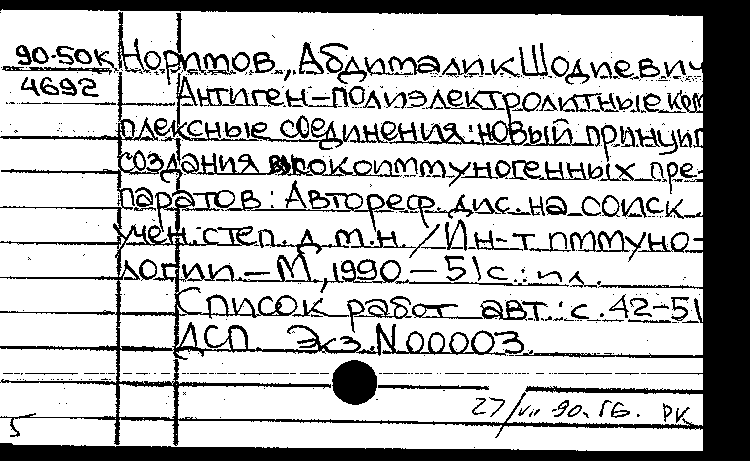 90-50К Норимов, Абдималик Шодиевич
4692 Антиген-полиэлектролитные ком
плексные соединения: новый принцип
создания высокоиммуногенных пре-
паратов: Автореф. дис. на соиск.
учен. степ. д. м. н. / Ин-т иммуно-
логии. — М., 1990. — 51 с.: ил.
Список работ авт.: с. 42-51
ДСП. Экз. N 00003.
27/VII 90. ГБ. РК
5